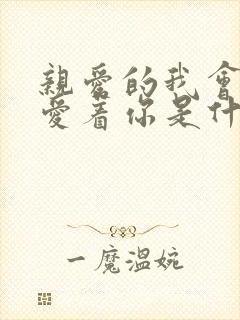 親愛的我會
愛着你是什
一魔溫婉